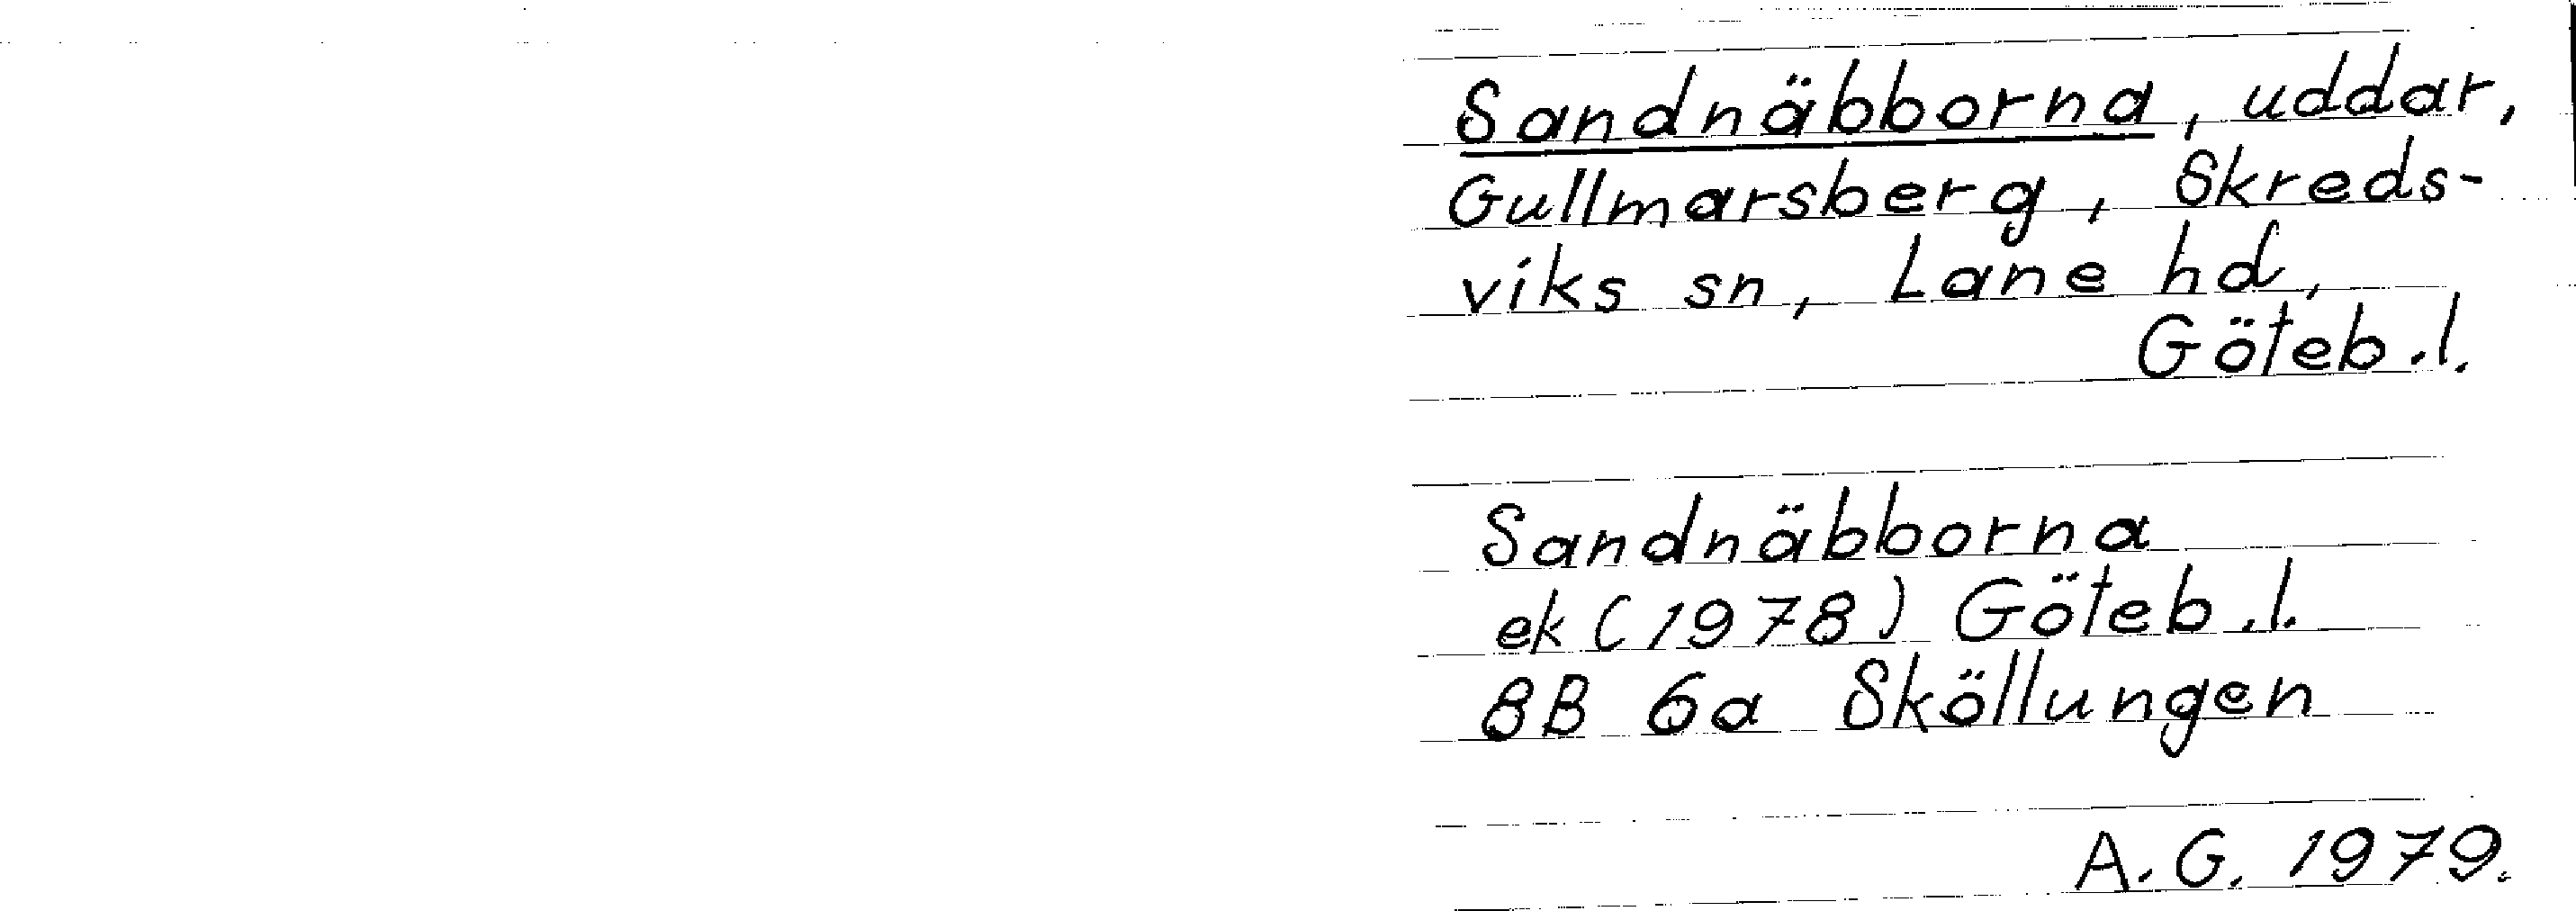 Sandnäbborna, uddar,
Gullmarsberg, Skreds-
viks sn, Lane hd,
Göteb.l.
Sandnäbborna
ek (1978) Göteb.l.
8B 6a Sköllungen
A.G. 1979.